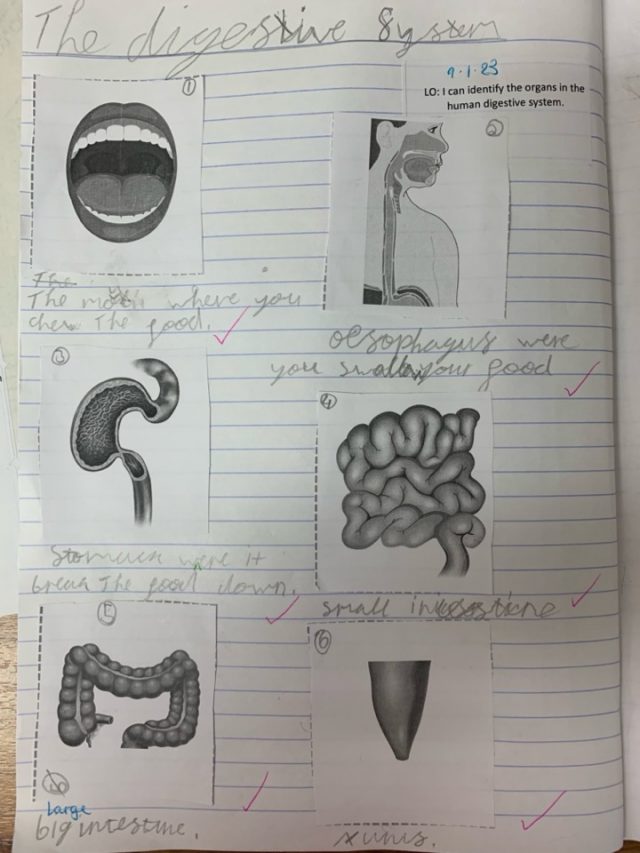 The digestive System
9.1.23
LO: I can identify the organs in the
human digestive system.
1
2
The where you
The food.
oesophagus were
you swallow your food
3
4
were it
break The food down.
small
5
6
Large
big intestine.